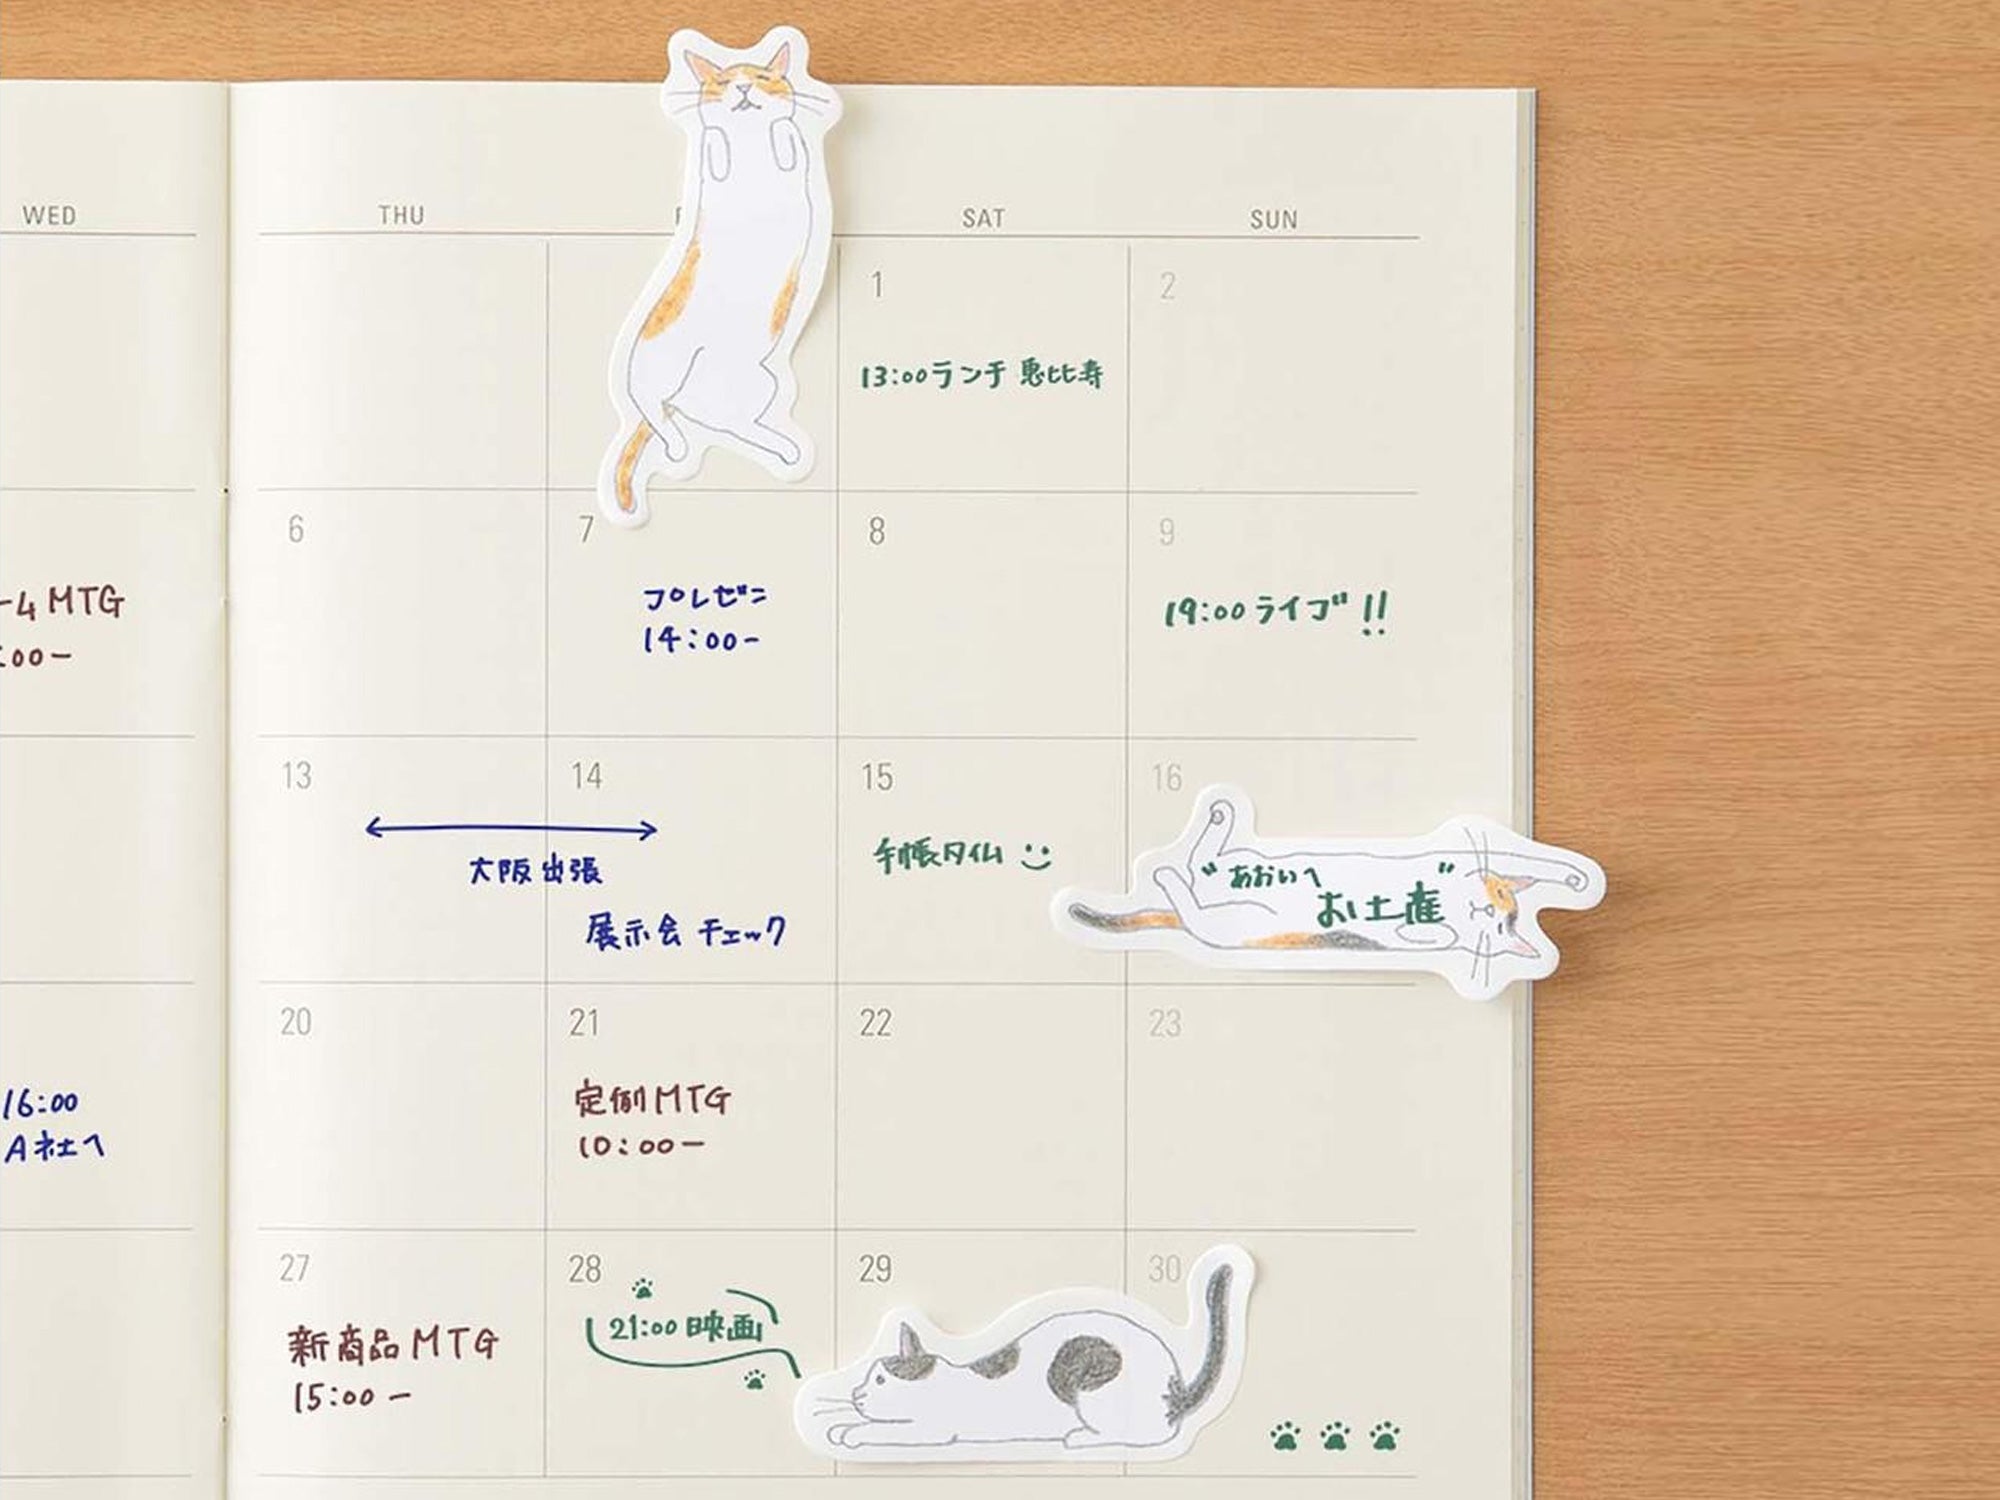 WED
THU
SAT
SUN
1
2
13:00ランチ 恵比寿
6
7
8
9
ーム MTG
:00ー
プレゼン
14:00ー
19:00 ライブ!!
13
14
15
16
大阪出張
手帳タイム
"あおいへ
お土産"
展示会チェック
20
21
22
23
16:00
A社へ
定例MTG
10:00ー
27
28
29
30
新商品MTG
15:00ー
21:00 映画